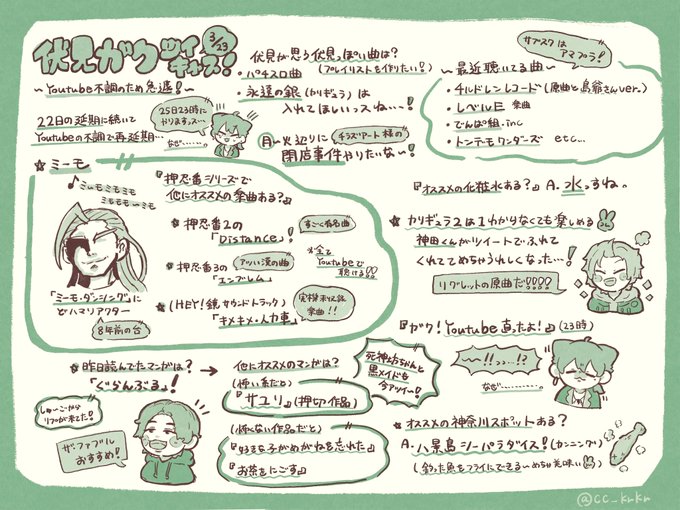 伏見ガクツイキャス!
3/23
〜Youtube不調のため急遽!〜
22日の延期に続いて
Youtubeの不調で再延期…
25日23時に
やりますッス…
なぜ………。
伏見が思う伏見っぽい曲は?
・パチスロ曲
(プレイリストを作りたい!)
・永遠の銀(カリギュラ)は
入れてほしいッスね…!
月〜火辺りに
チラズアート様の
閉店事件やりたいな〜!
サブスクは
アマプラ!
〜最近聴いてる曲〜
・チルドレンレコード(原曲と鳥爺さんver.)
・レベルE 楽曲
・でんぱ組.inc
・トンデモワンダーズ etc…
☆ミーモ
♪ミーモミモミモ
ミモモモ〜ミモ
「ミーモ・ダンシング」に
どハマりアクター
8年前の台
『押忍番シリーズで
他にオススメの楽曲ある?』
押忍番2の
「Distance」!
すごく有名曲
押忍番3の
「エンブレム」
アツい漢の曲
※全て
Youtubeで
聴ける!!
(HEY!鏡サウンドトラック)
「キメキメ・人力車」
実機未収録
楽曲!!
『オススメの化粧水ある?』 A. 水っすね。
☆カリギュラ2は1わかりなくても楽しめる
神田くんがツイートでふれて
くれててめちゃうれしくなった…!
リグレットの原曲だ!!!!
『ガク!Youtube直ったよ!』(23時)
〜〜!!っっ…!?
なぜ………。
☆昨日読んでたマンガは?
「ぐらんぶる」!
しゅーごからリプが来てた!
ザ・ファブル
おすすめ!
→
他にオススメのマンガは?
(怖い系だと)
『サユリ』(押切作品)
死神坊ちゃんと
黒メイドも
今アツい!
(怖くない作品だと)
『好きな子がめがねを忘れた』
『お茶をにごす』
☆オススメの神奈川スポットある?
A. 八景島シーパラダイス!(カンニング)
(釣った魚をフライにできる〜めちゃ美味い)
@cc_knkn